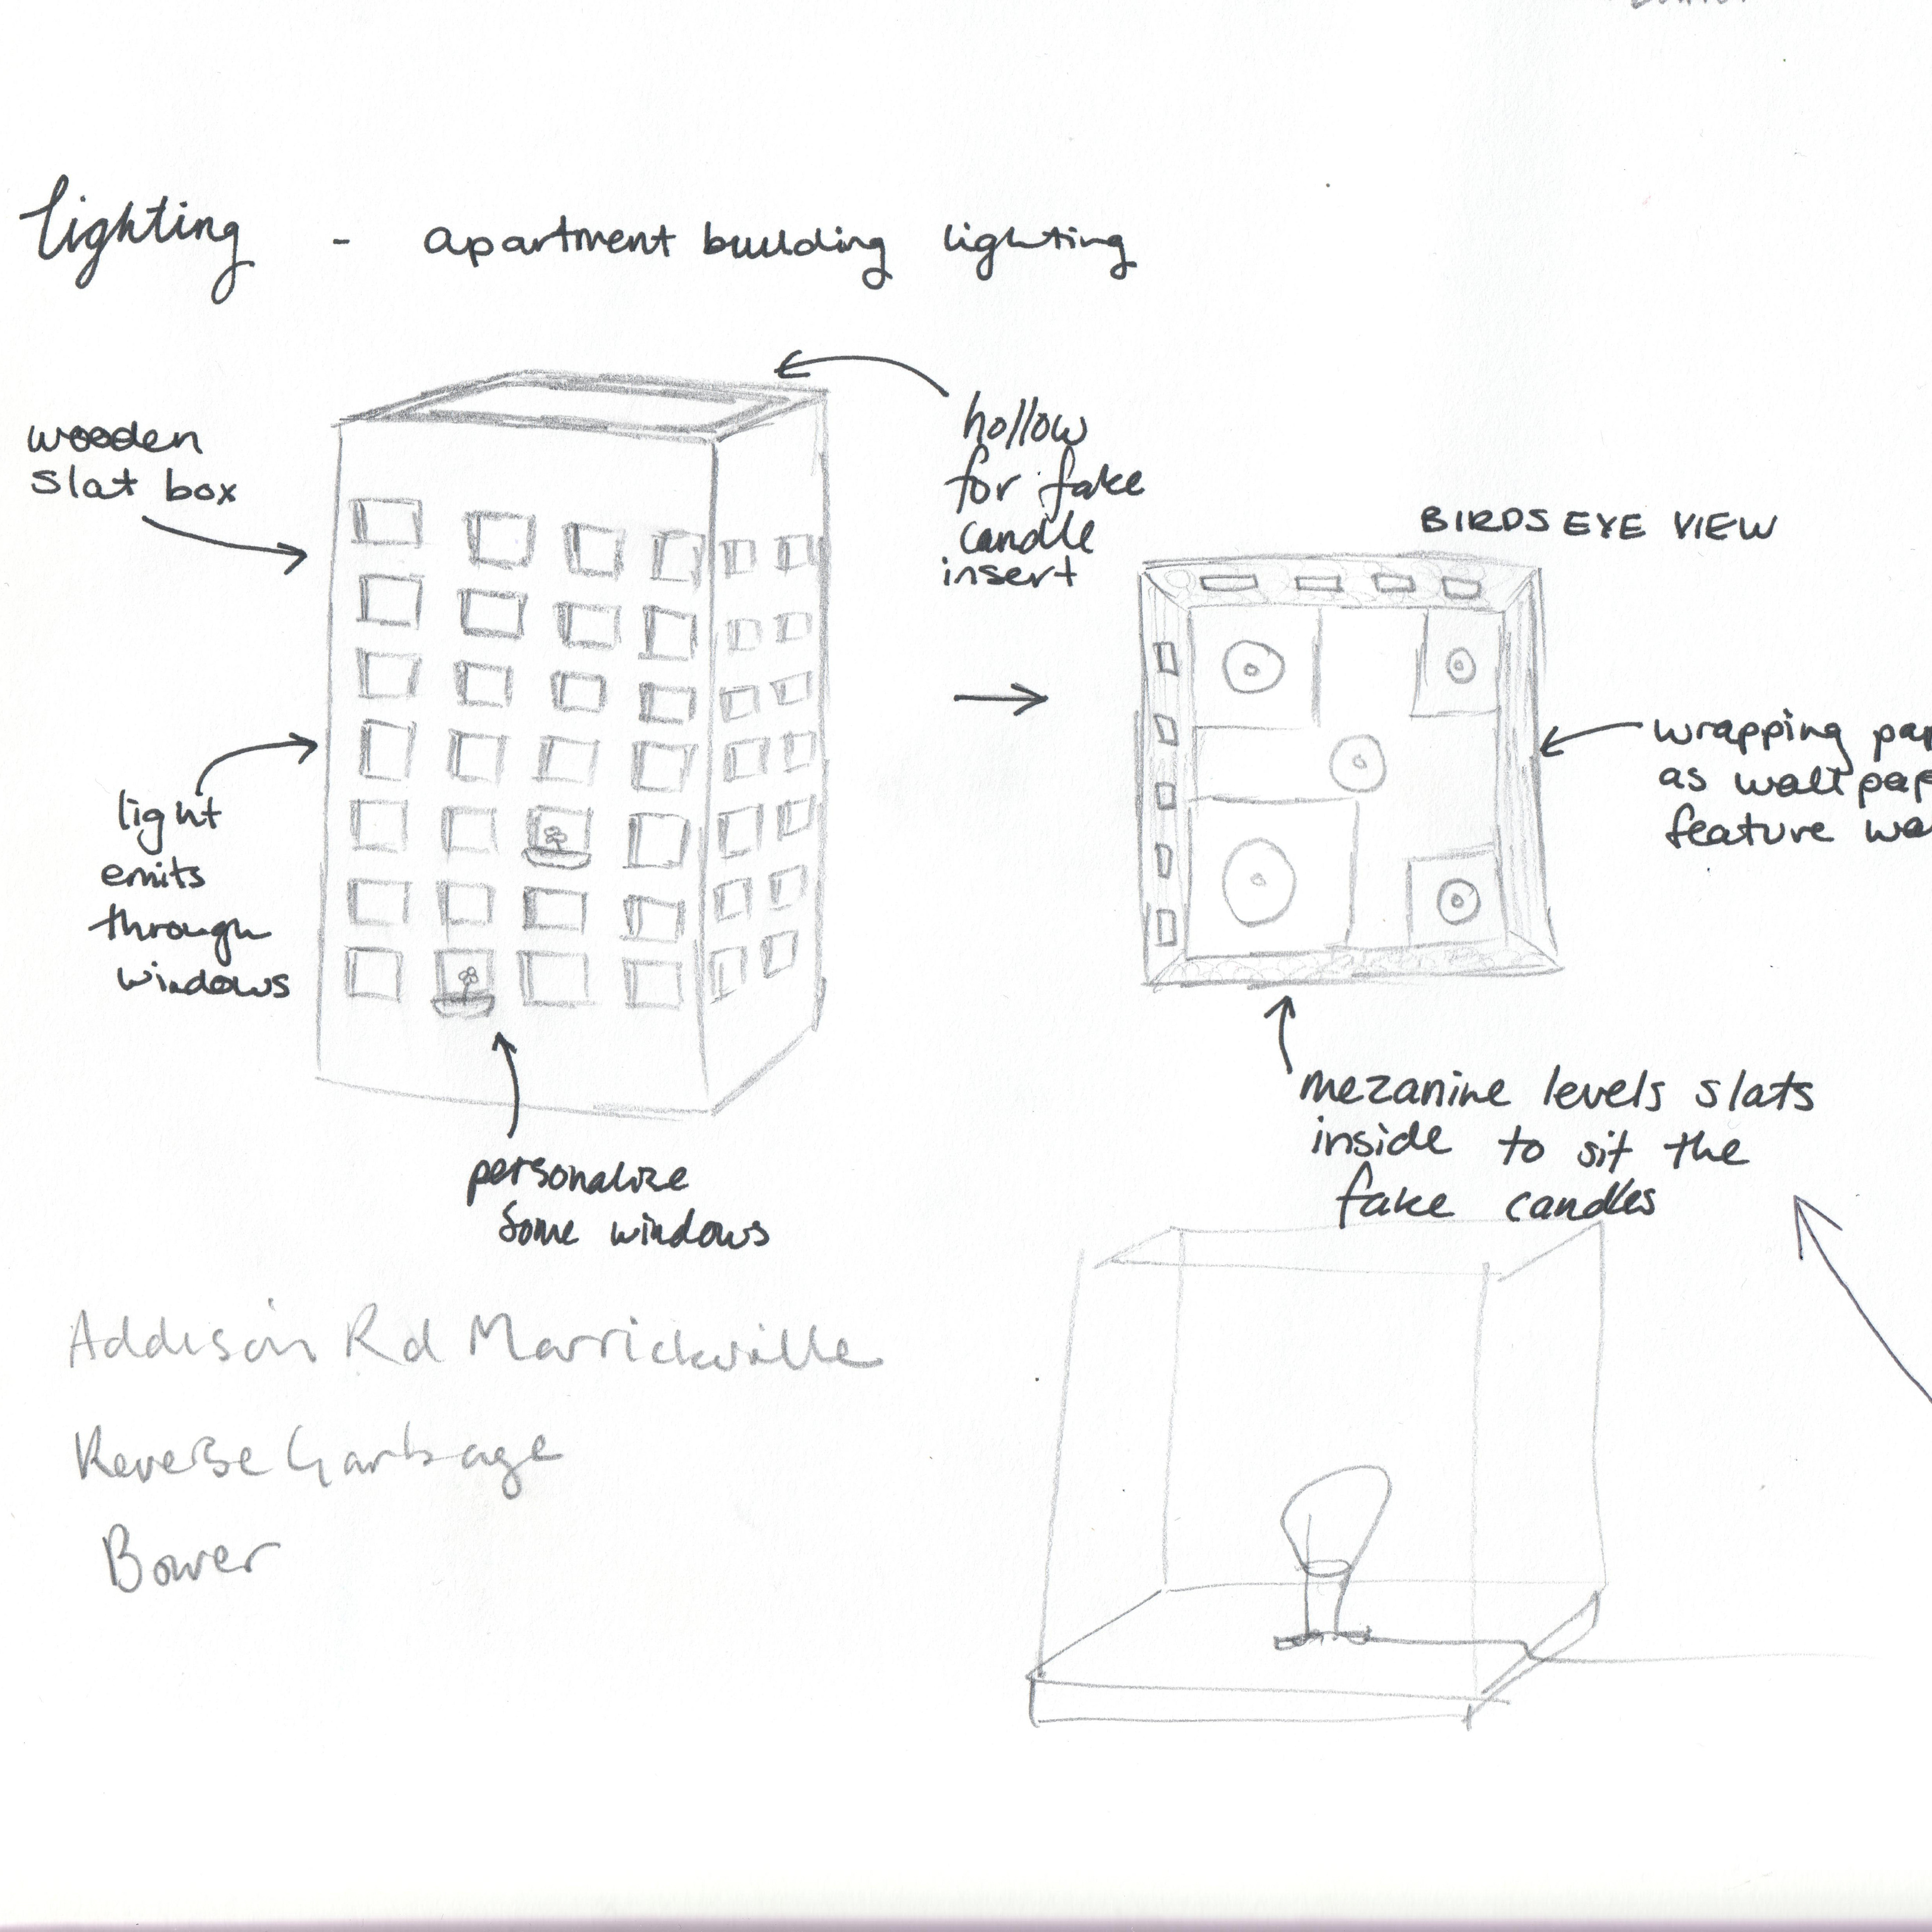 lighting - apartment building lighting
wooden
slat box
hollow
for fake
candle
insert
light
emits
through
windows
personalize
some windows
BIRDS EYE VIEW
wrapping
as wallpap
feature
mezanine levels slats
inside to sit the
fake candles
Addison Rd Marrickville
Reverse Garbage
Bower